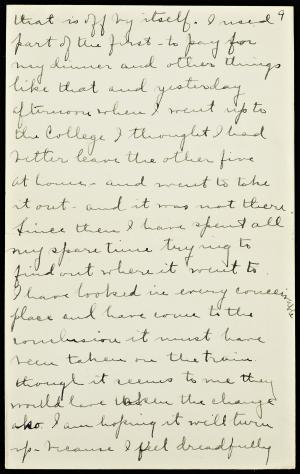 9
that is off by itself. I used
part of the first - to pay for
my dinner and other things
like that and yesterday
afternoon when I went up to
the College I thought I had
better leave the other five
at home - and went to take
it out - and it was not there.
Since then I have spent all
my spare time trying to
find out where it went to.
I have looked in every conceivable
place and have come to the
conclusion it must have
been taken on the train.
though it seems to me they
would have taken the change
also I am hoping it will turn
up - because I feel dreadfully